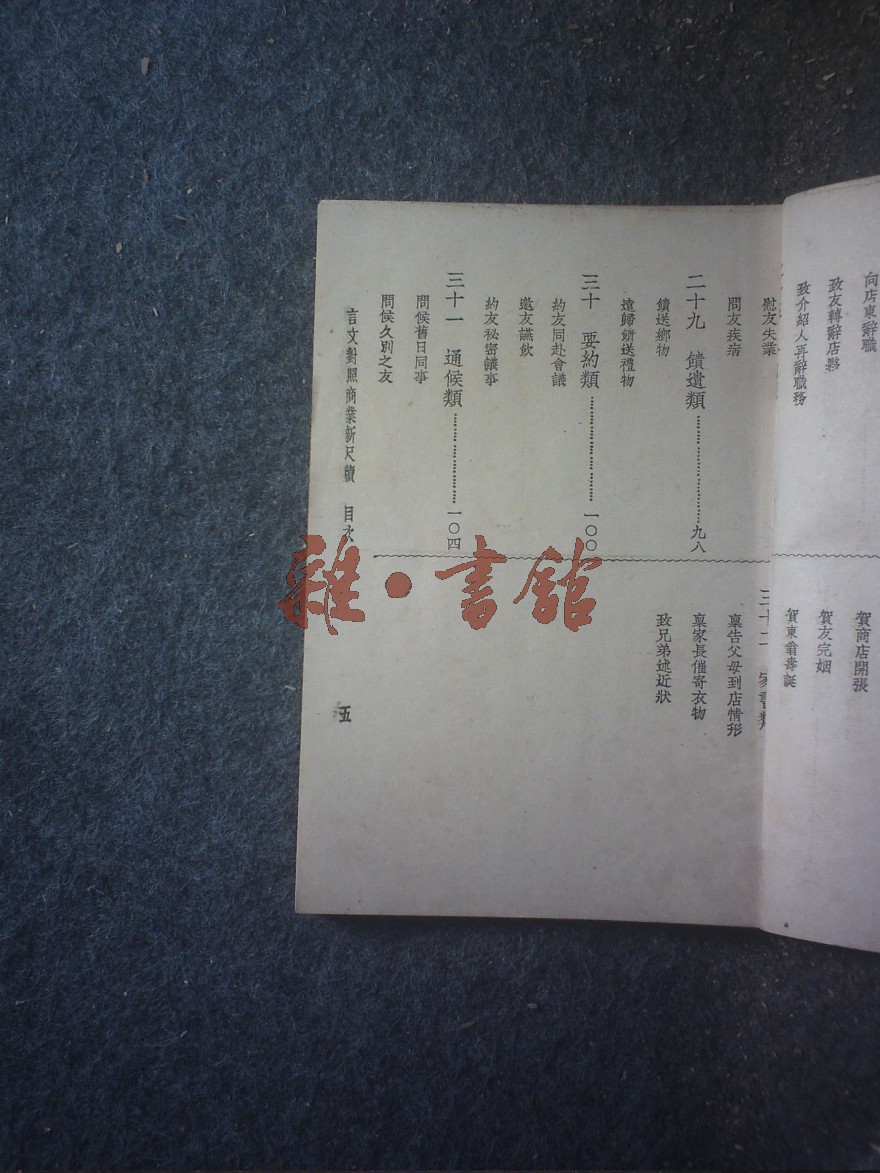 向店東辭職
致友轉辭店夥
致介紹人再辭職務
賀商店開張
賀友完姻
賀東翁壽誕
慰友失業
問友疾病
二十九 饋遺類……九八
饋送鄉物
遠歸餠送禮物
三十 要約類……一〇〇
約友同赴會議
邀友讌飲
約友秘密議事
三十一 通候類……一〇四
問候舊日同事
問候久別之友
三十二 家書類
稟告父母到店情形
稟家長催寄衣物
致兄弟述近狀
言文對照商業新尺牘 目次
五
雜·書館